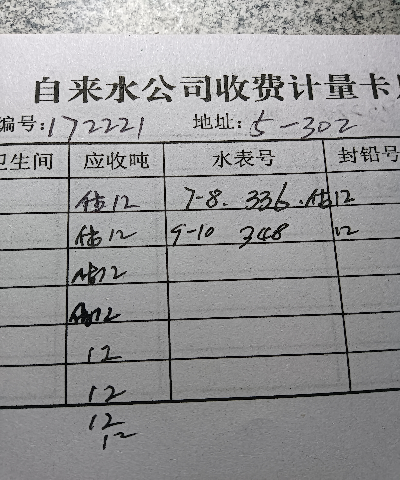 自来水公司收费计量卡片
编号:172221 地址:5-302
卫生间 应收吨 水表号 封铅号
估12 7-8. 336. 估12
估12 9-10 348 12
估12
估12
12
12
12
12